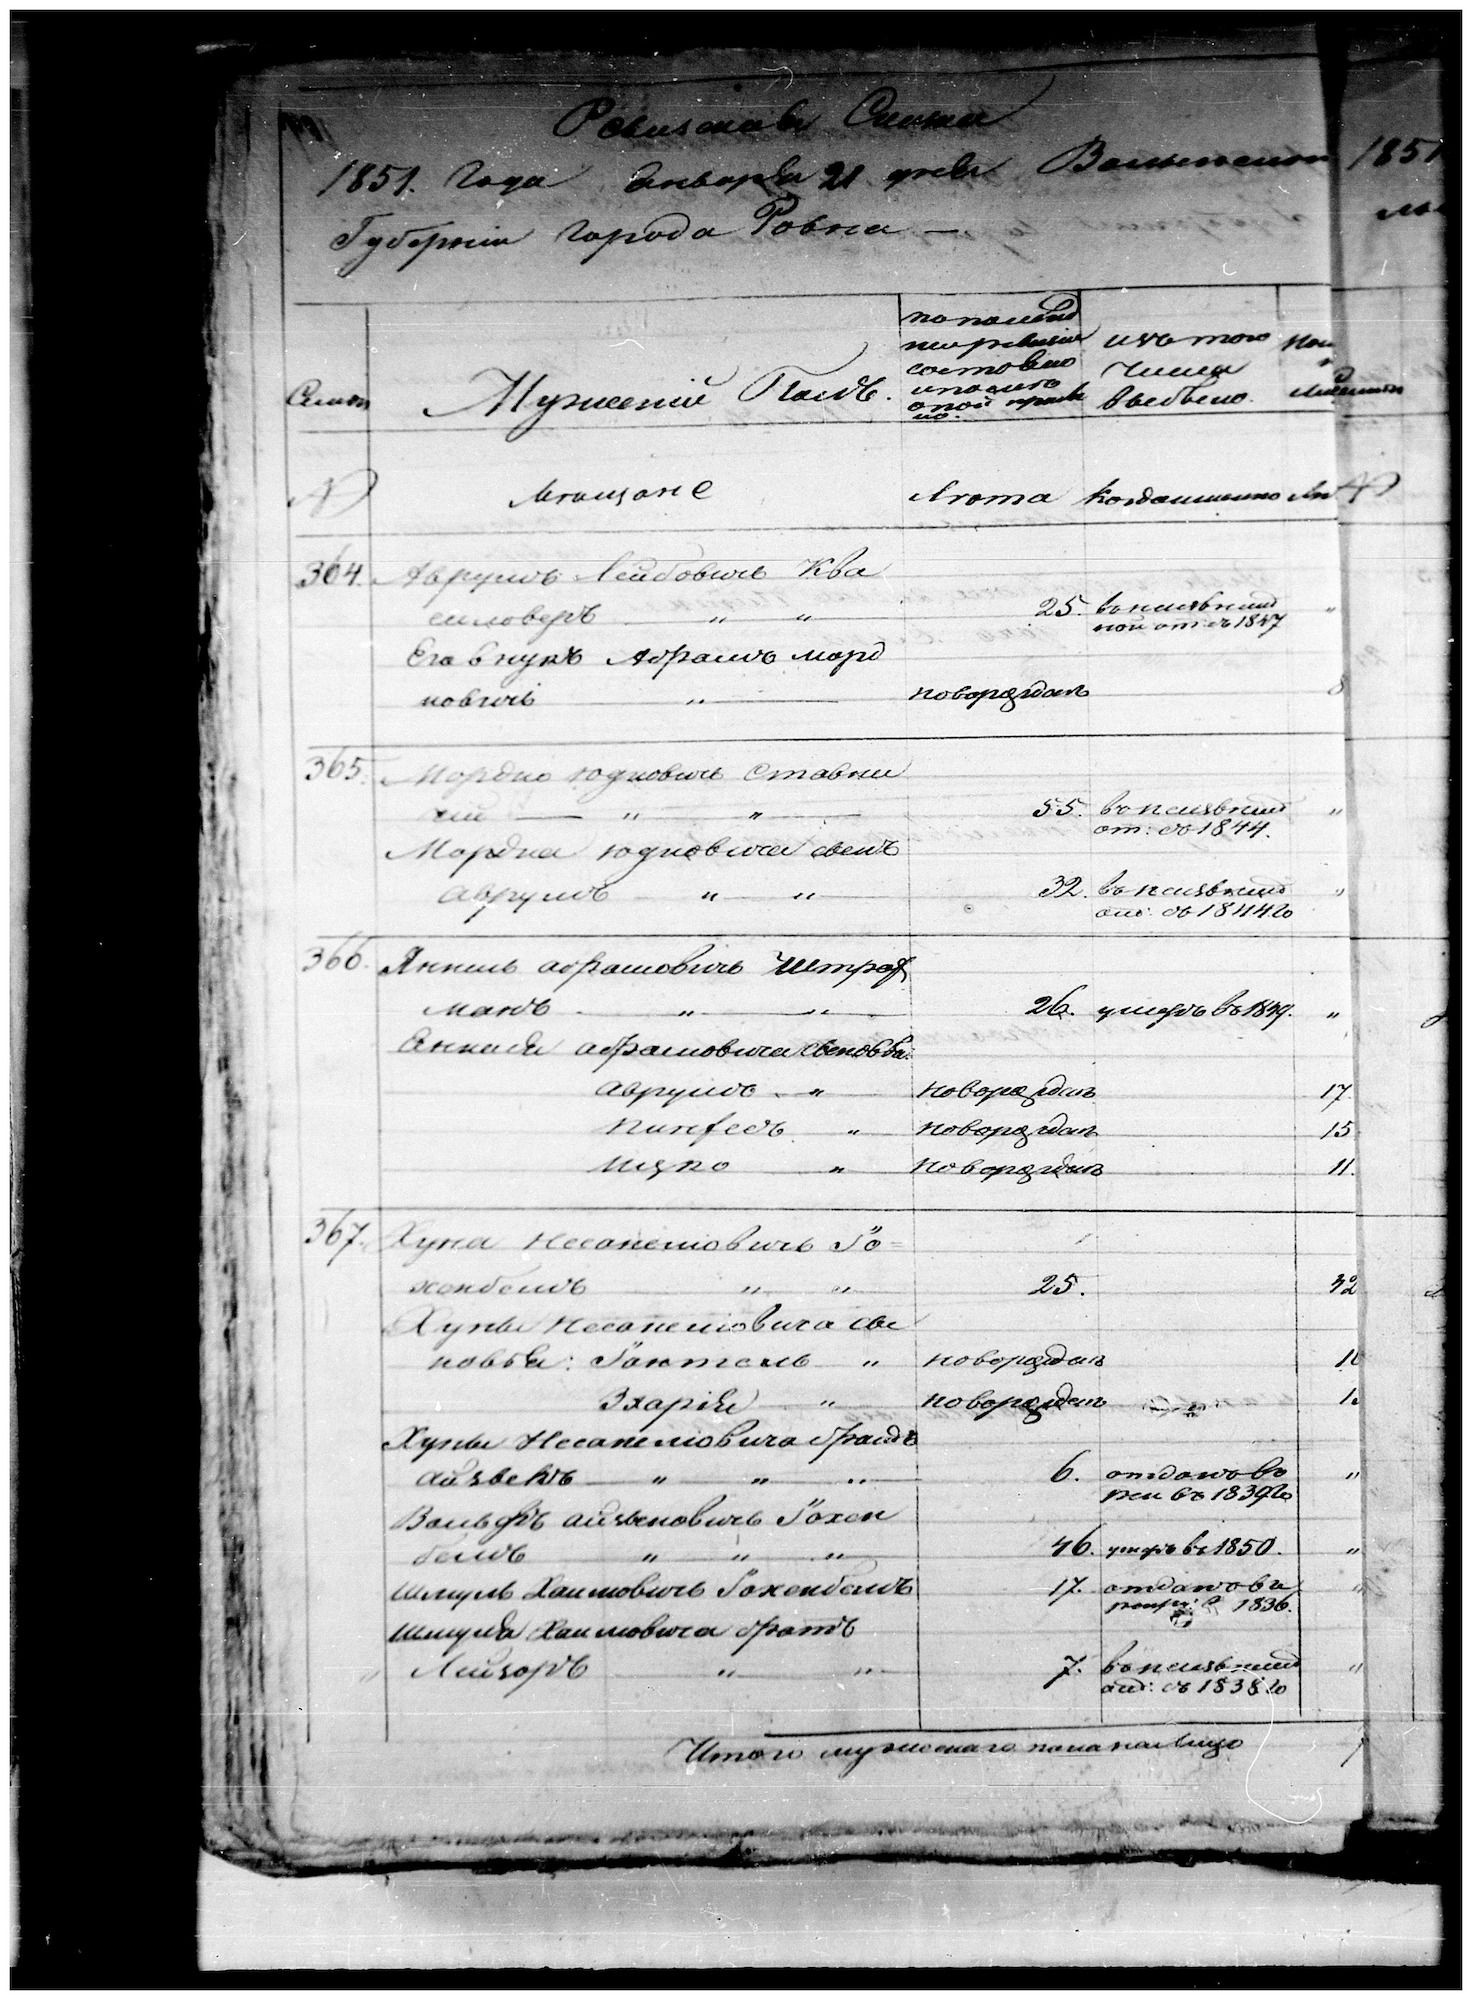 Ревизская Сказка
1851. Года Января 21 дня Волынской
Губернiи города Ровна —
1851
Семьи
Мужескiй Полъ.
по последней ревизiи состояло и после оной прибыло.
изъ того числа выбыло.
Мещане
Лета Когда именно
364. Аврумъ Лейбовичъ Ква
силоверъ " " 25. въ неизвестной от: съ 1847 "
Его внукъ Абрамъ Морд
ковичъ " новорожден
365. Мордко Юдковичъ Ставни
" " 55. въ неизвестной от: съ 1844. "
Мордка Юдковича сынъ
Аврумъ " " 32. въ неизвестной от: съ 1844го "
366. Янкель Абрамовичъ Штраф
манъ " " 26. умеръ въ 1849. "
Янкеля Абрамовича сыновья:
Аврумъ " новорожден 17.
Пинфесъ " новорожден 15
Ицко " новорожден 11.
367. Хуна Несанелiовичъ Го=
хенбемъ " " 25. 42
Хуны Несанелiовича сы
новья: " новорожден
Зхарiя " новорожден
Хуны Несанелiовича братъ
Айзыкъ " " " 6. отданъ въ рек въ 1839го "
Вольфъ Айзыковичъ Гохен
бемъ " " " 46. умеръ въ 1850. "
Шмуль Хаимовичъ Гохенбемъ 17. отданъ въ рекру: в 1836. "
Шмуля Хаимовича братъ
Лейзоръ " " 7. въ неизвестной от: съ 1838го "
Итого мужескаго пола на лицо